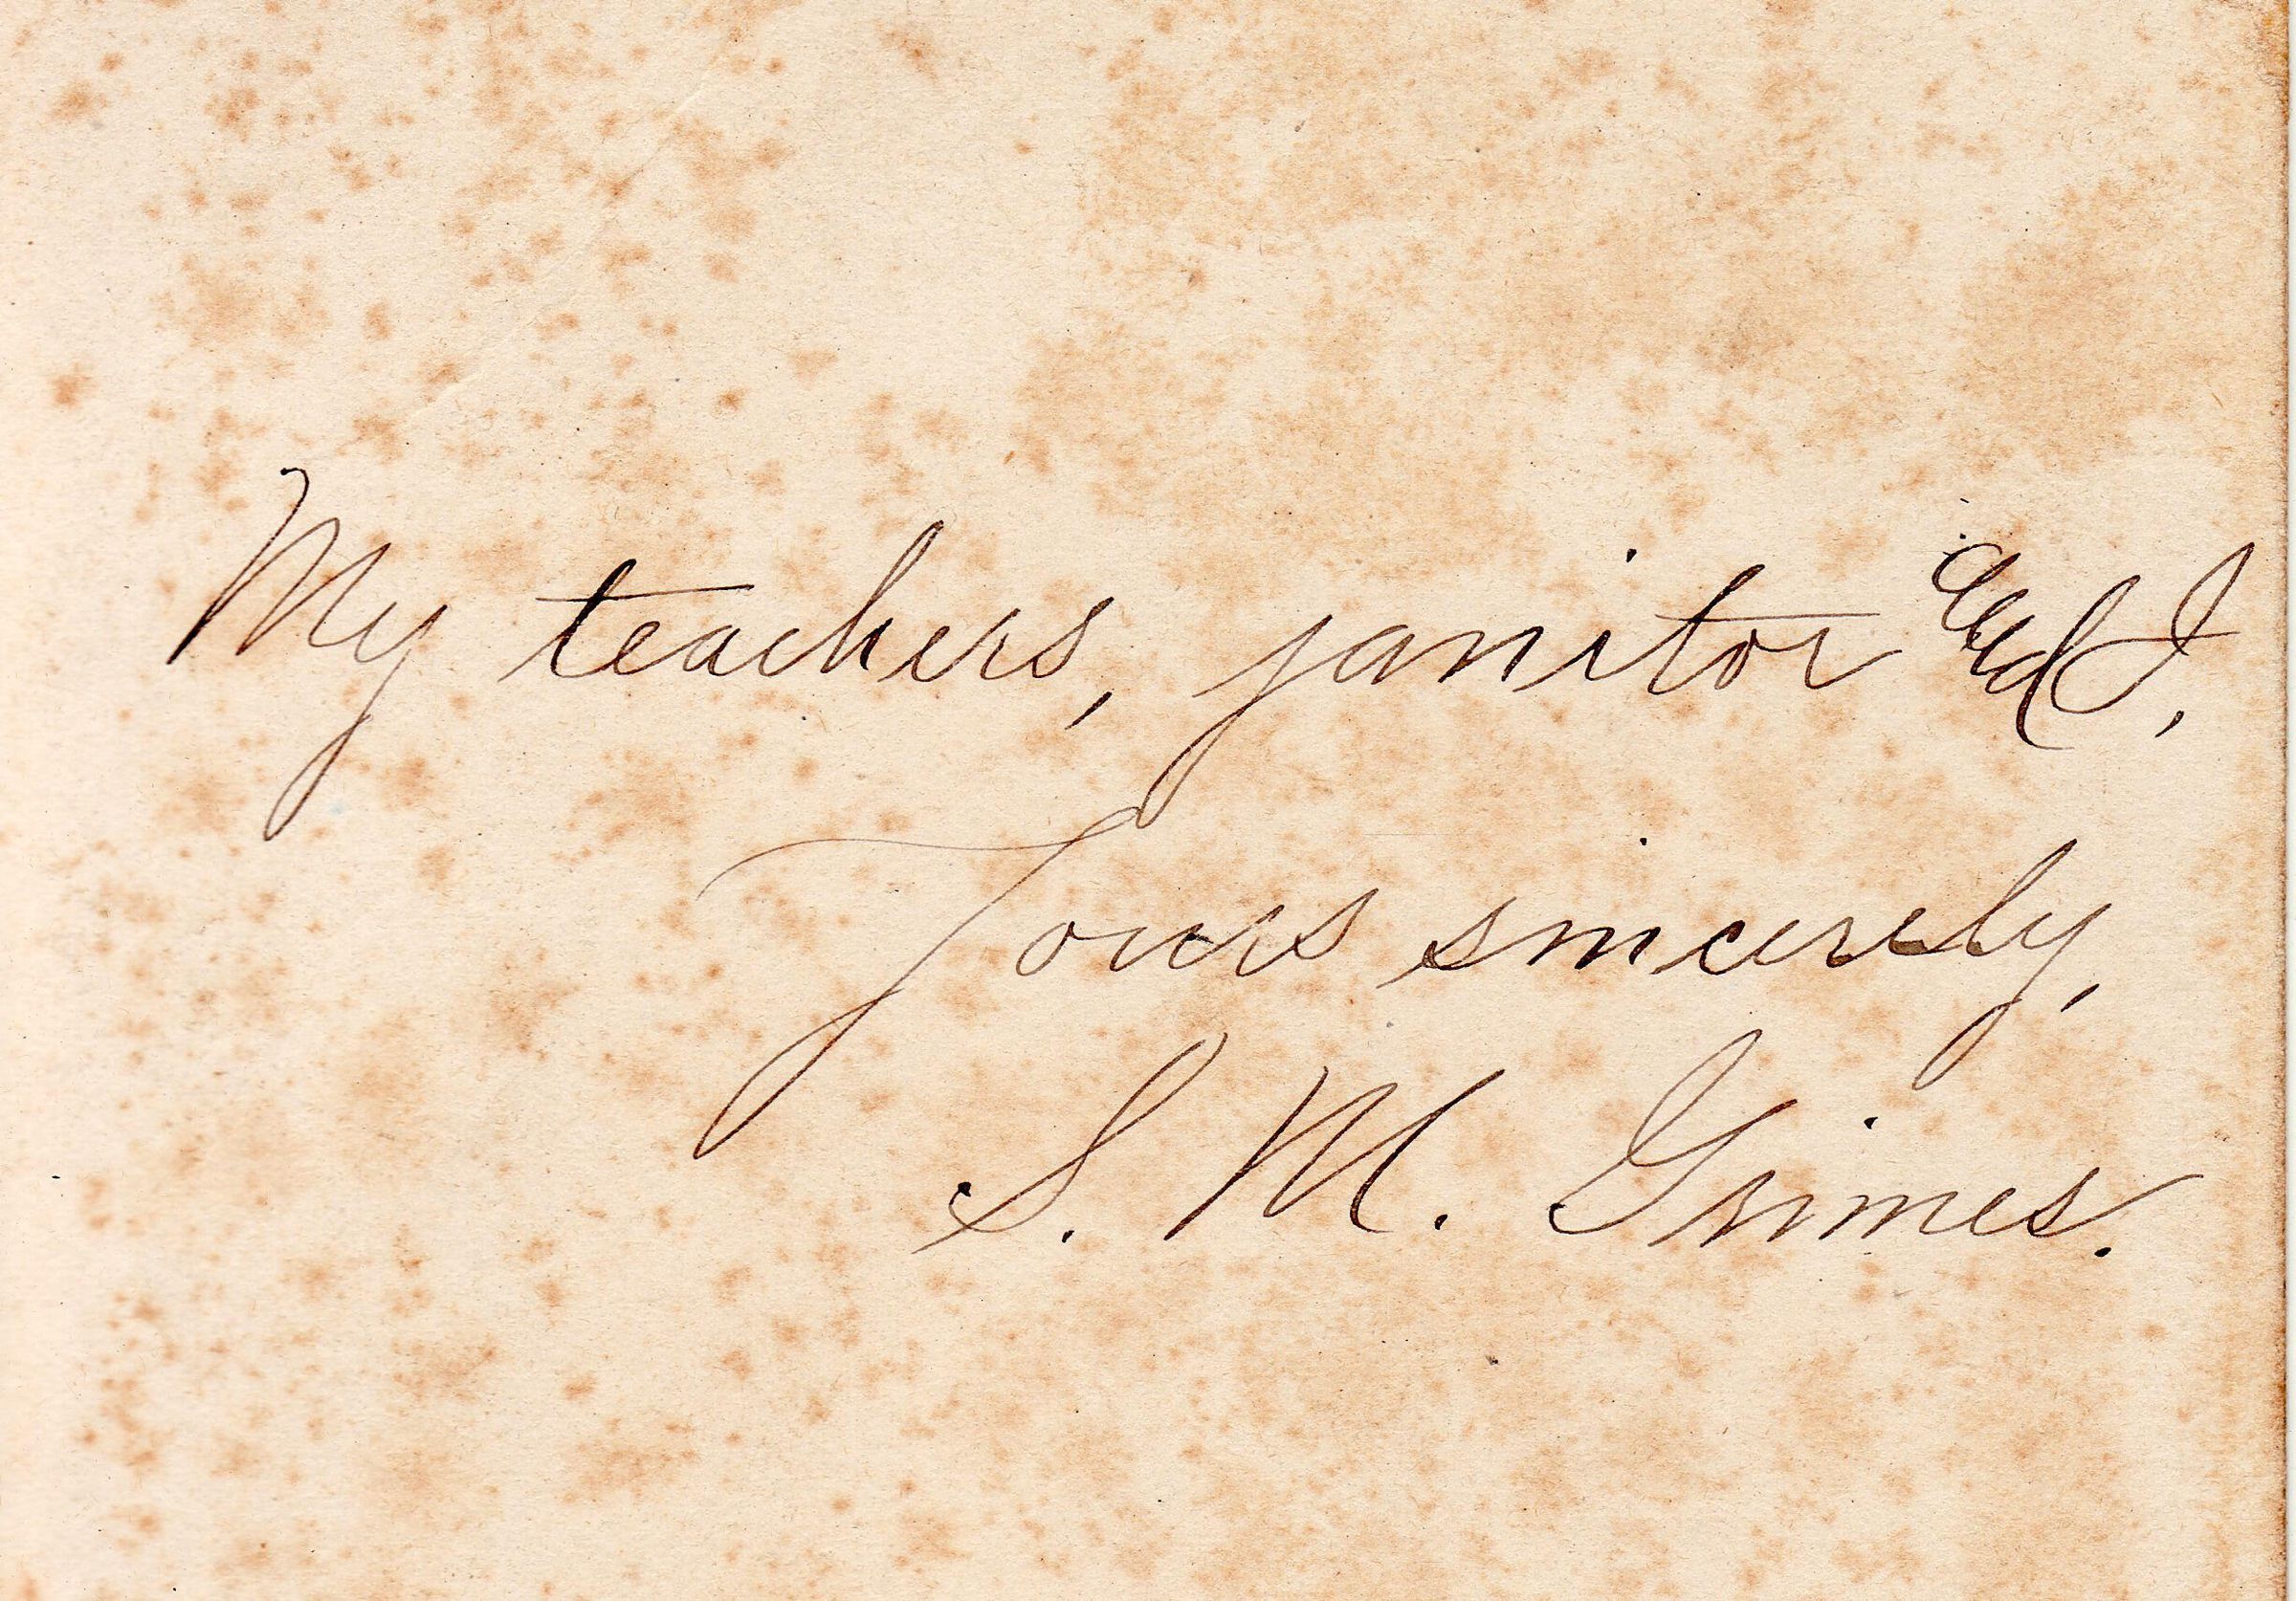 My teachers, janitor and I,
Yours sincerely,
S. M. Grimes.